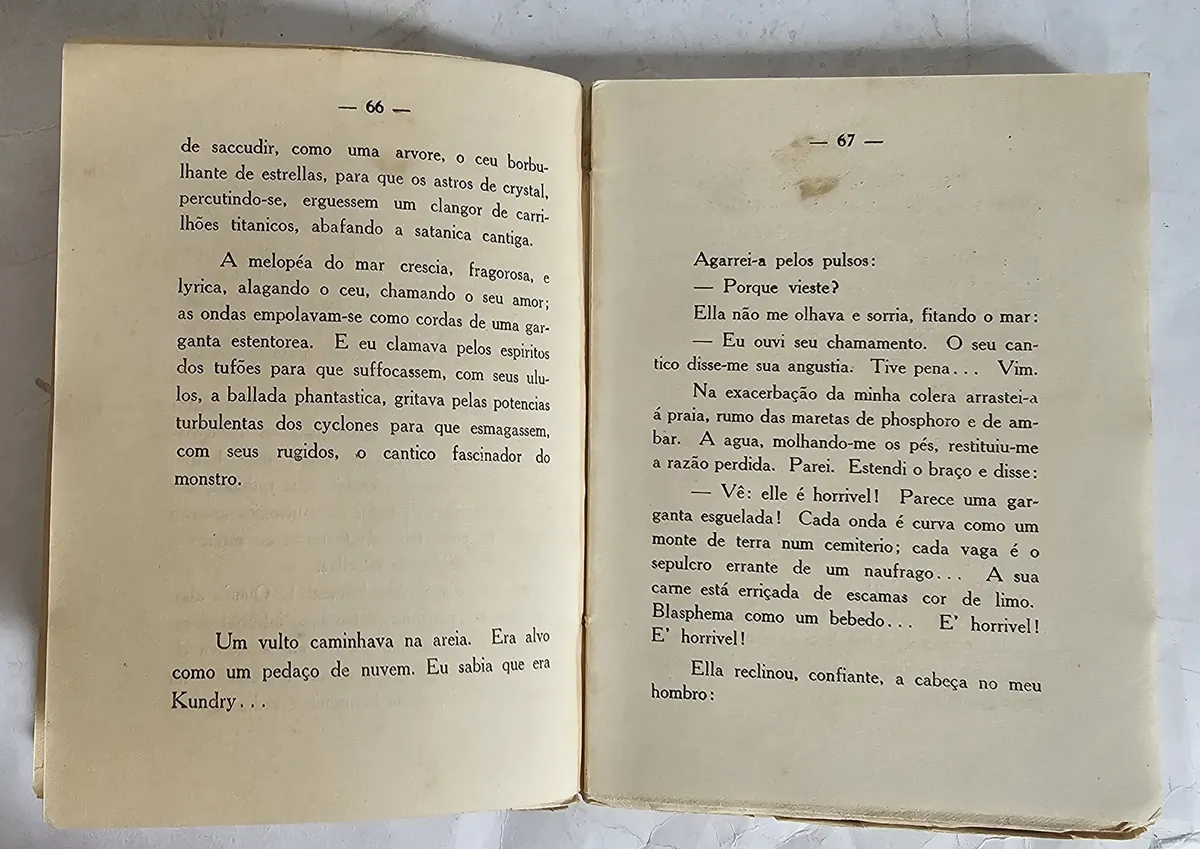 — 66 —
de saccudir, como uma arvore, o ceu borbu-
lhante de estrellas, para que os astros de crystal,
percutindo-se, erguessem um clangor de carri-
lhões titanicos, abafando a satanica cantiga.
A melopéa do mar crescia, fragorosa, e
lyrica, alagando o ceu, chamando o seu amor;
as ondas empolavam-se como cordas de uma gar-
ganta estentorea. E eu clamava pelos espiritos
dos tufões para que suffocassem, com seus ulu-
los, a ballada phantastica, gritava pelas potencias
turbulentas dos cyclones para que esmagassem,
com seus rugidos, o cantico fascinador do
monstro.
Um vulto caminhava na areia. Era alvo
como um pedaço de nuvem. Eu sabia que era
Kundry...
— 67 —
Agarrei-a pelos pulsos:
— Porque vieste?
Ella não me olhava e sorria, fitando o mar:
— Eu ouvi seu chamamento. O seu can-
tico disse-me sua angustia. Tive pena... Vim.
Na exacerbação da minha colera arrastei-a
á praia, rumo das maretas de phosphoro e de am-
bar. A agua, molhando-me os pés, restituiu-me
a razão perdida. Parei. Estendi o braço e disse:
— Vê: elle é horrivel! Parece uma gar-
ganta esguelada! Cada onda é curva como um
monte de terra num cemiterio; cada vaga é o
sepulcro errante de um naufrago... A sua
carne está erriçada de escamas cor de limo.
Blasphema como um bebedo... E' horrivel!
E' horrivel!
Ella reclinou, confiante, a cabeça no meu
hombro: